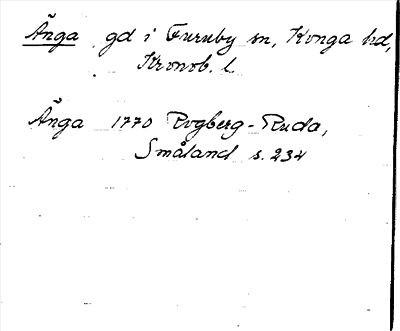 Änga gd i Furuby sn, Konga hd,
Kronob. l.
Änga 1770 Rogberg-Ruda,
Småland s. 234